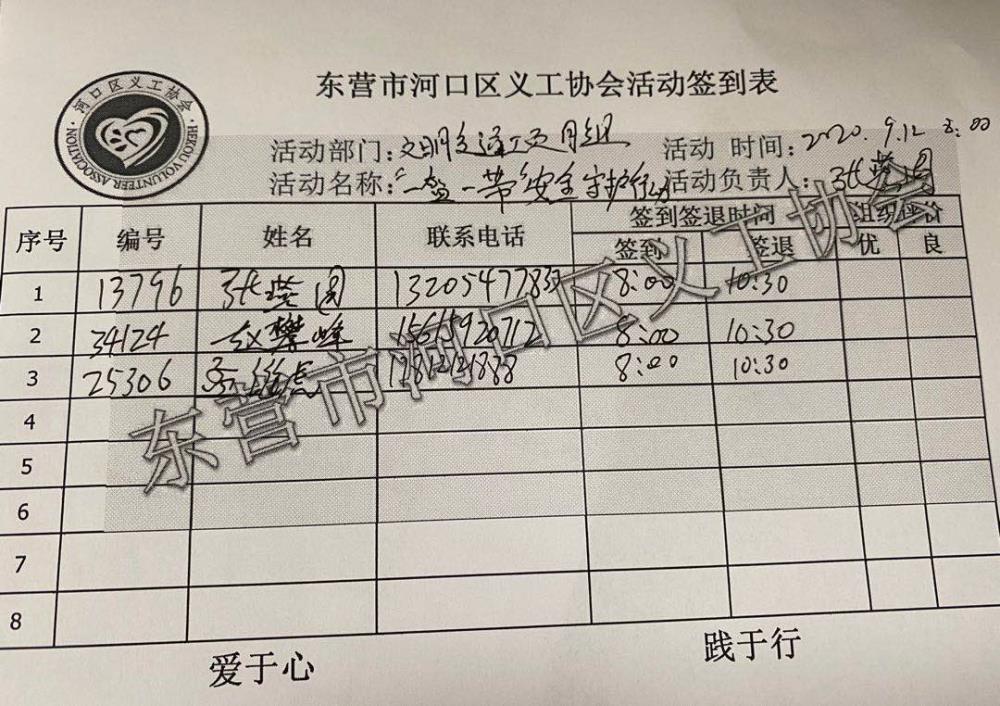 东营市河口区义工协会活动签到表
河口区义工协会
HEKOU VOLUNTEER ASSOCIATION
活动部门：文明交通项目组 活动 时间：2020.9.12 8:00
活动名称：“一盔一带”安全守护行动 活动负责人：张
序号 编号 姓名 联系电话 签到签退时间 组织评价
签到 签退 优 良
1 13796 张 8:00 10:30
2 34124 赵攀峰 15615920712 8:00 10:30
3 25306 8:00 10:30
4
5
6
7
8
东营市河口区义工协会
爱于心 践于行